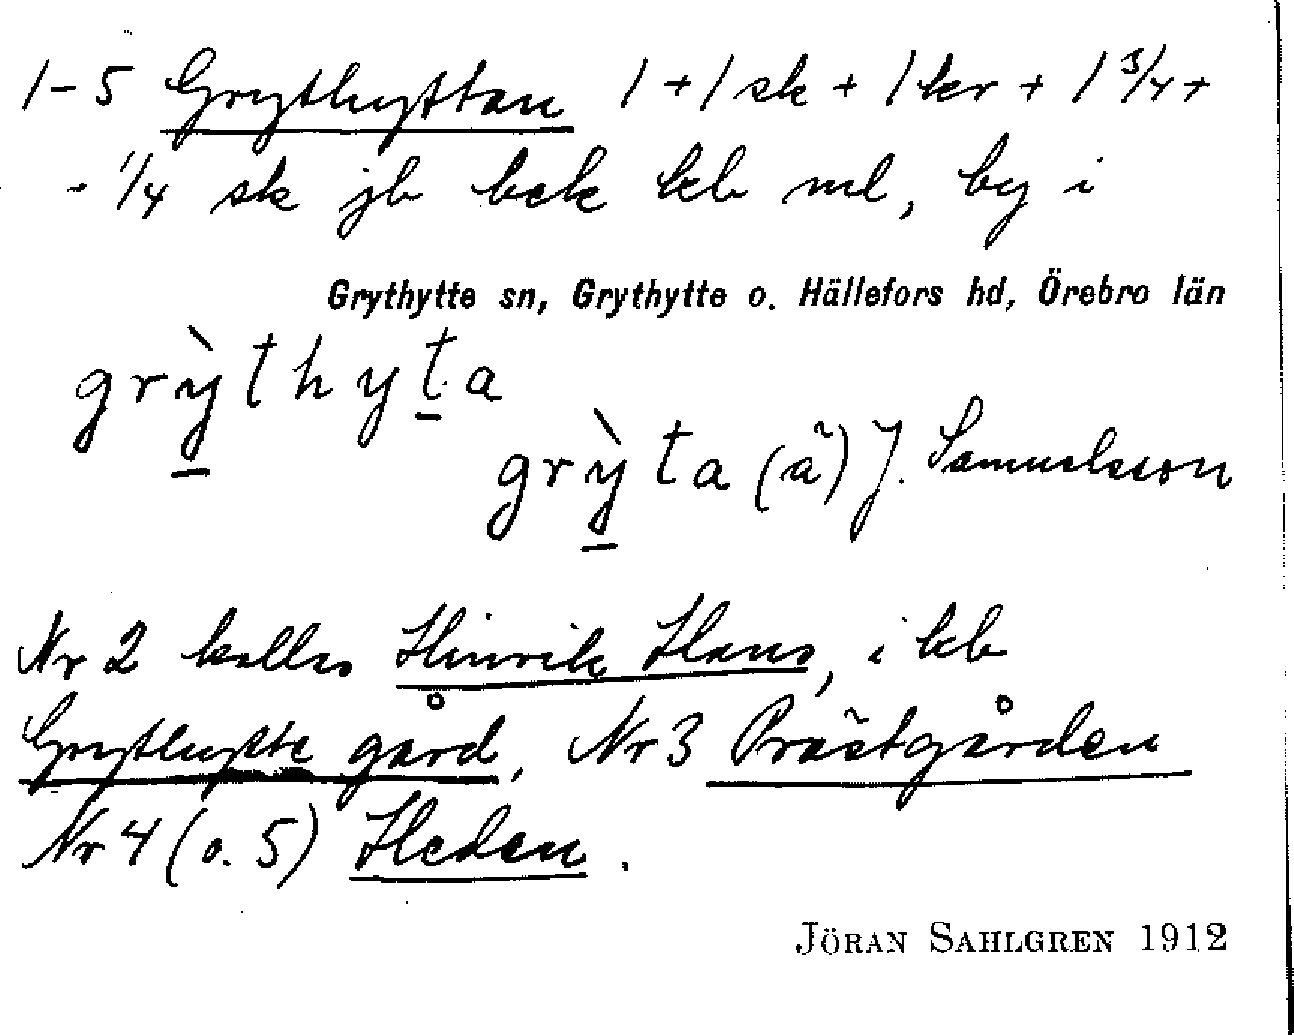 1-5 Grythyttan 1 + 1 sk + 1 kr + 1 3/4 +
- 1/4 sk jb bek kb ml, by i
Grythytte sn, Grythytte o. Hällefors hd, Örebro län
grỳthyta
grỳta (ä) J. Samuelsson
Nr 2 kallas Hinrik Hans, i kb
Grythytte gård, Nr 3 Prästgården
Nr 4 (o. 5) Heden.
JÖRAN SAHLGREN 1912